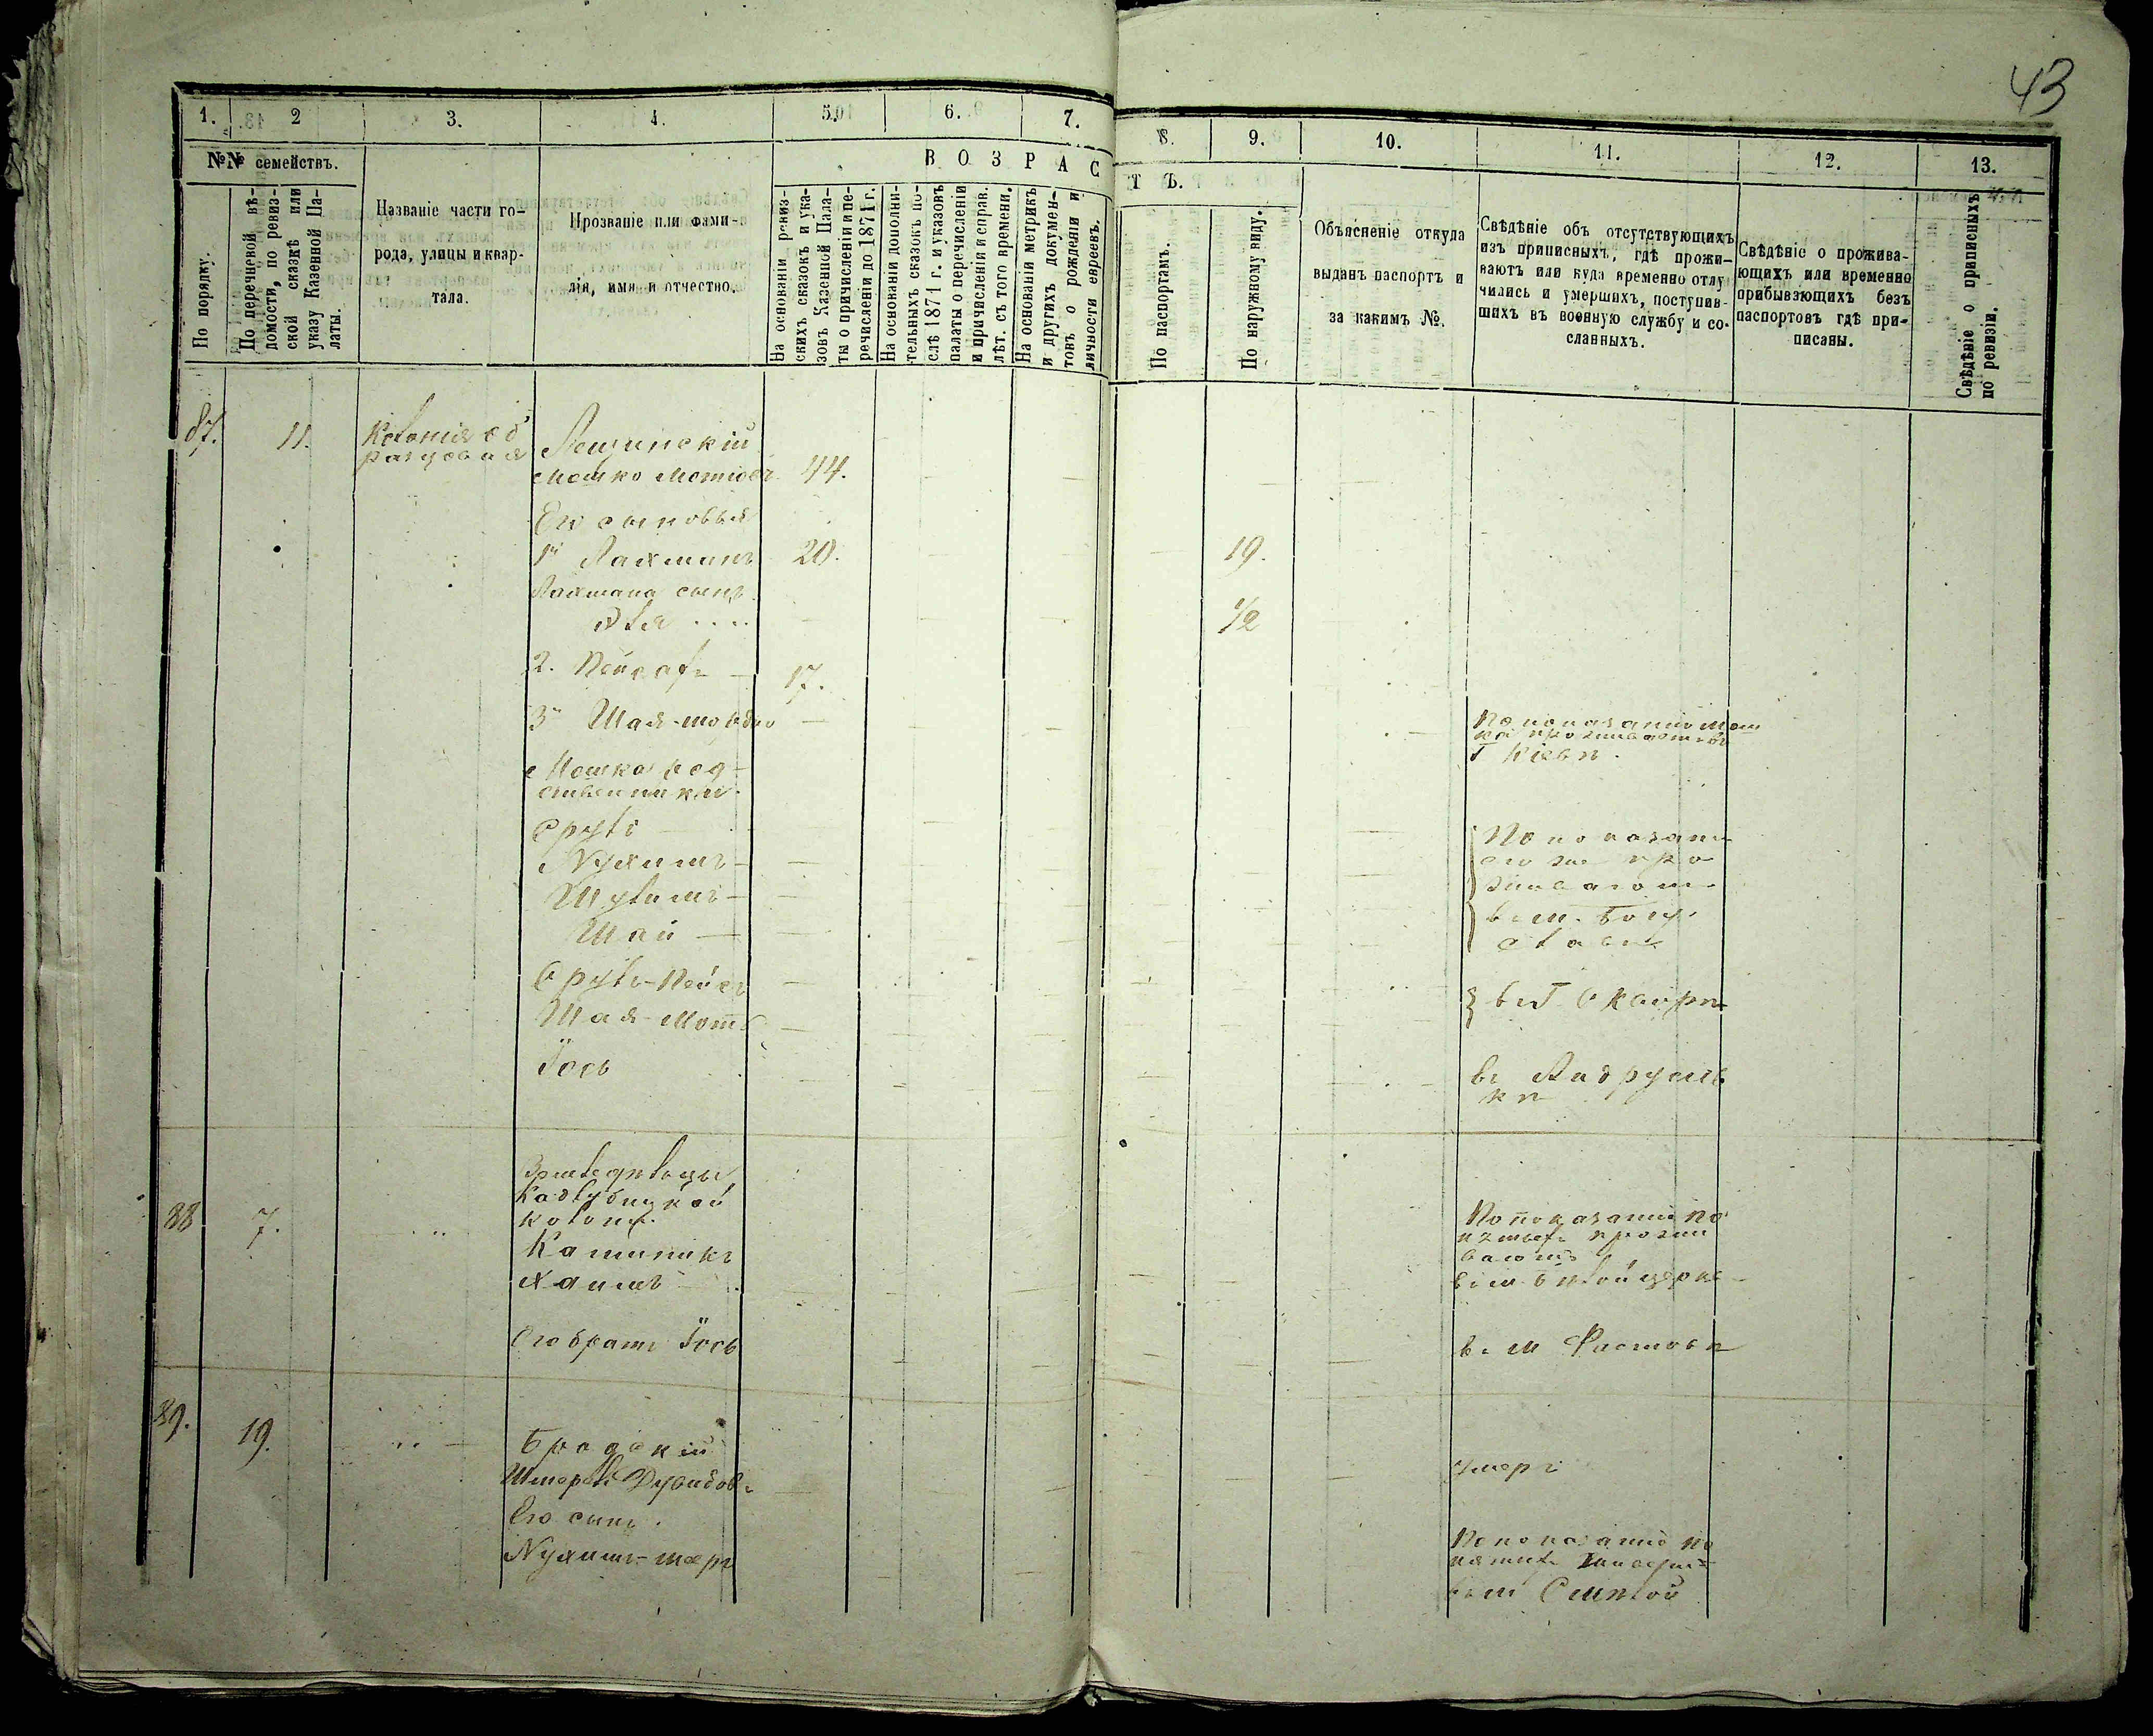 43
1. 2 3. 4. 5. 6. 7. 8. 9. 10. 11. 12. 13.
№№ семействъ.
В О З Р А С Т Ъ.
По порядку.
По перечневой вѣ-
домости, по ревиз-
ской сказкѣ или
указу Казенной Па-
латы.
Названіе части го-
рода, улицы и квар-
тала.
Прозваніе или фами-
лія, имя и отчество.
На основаніи ревиз-
скихъ сказокъ и ука-
зовъ Казенной Пала-
ты о причисленіи и пе-
речисленіи до 1871 г.
На основаніи дополни-
тельныхъ сказокъ по-
слѣ 1871 г. и указовъ
палаты о перечисленіи
и причисленіи и справ.
лѣт. съ того времени.
На основаніи метрикъ
и другихъ докумен-
товъ о рожденіи и
личности евреевъ.
По паспортамъ.
По наружному виду.
Объясненіе откуда
выданъ паспортъ и
за какимъ №.
Свѣдѣніе объ отсутствующихъ
изъ приписныхъ, гдѣ прожи-
ваютъ или куда временно отлу
чились и умершихъ, поступив-
шихъ въ военную службу и со-
сланныхъ.
Свѣдѣніе о прожива-
ющихъ или временно
прибывающихъ безъ
паспортовъ гдѣ при-
писаны.
Свѣдѣніе о приписныхъ
по ревизіи.
87. 11. Колонія об
разцовая
Лещинскій
Мошко Мотіовъ 44.
Его сыновья
1й Рахминъ 20. 19.
Рахмана сынъ
Эля 1/2
2. Пейсахъ 17.
3й Шая-
По показанію Мош
ка проживаетъ въ
г Кіевѣ.
Мошка род-
ственники
Сруль
Нухимъ
Шулимъ
Шай
По показанію
его же про
живаютъ
въ м. Богу
славѣ
Сруль-Пейсъ
Шая-Мот
въ Г Сквирѣ
Іось
въ Андрушъ
кѣ
Земледѣльцы
Кадлубицкой
колоніи.
88 7. Камѣникъ
Хаимъ
По показанію по
нятыхъ прожи
ваютъ
въ м Бѣлой церкв
Его братъ Іось
въ м Фастовѣ
89. 19. Бродскій
Шмерель Дувидовъ
Умеръ
Его сынъ.
Нухимъ-меръ
По показанію по
нятыхъ
въ м Смѣлой